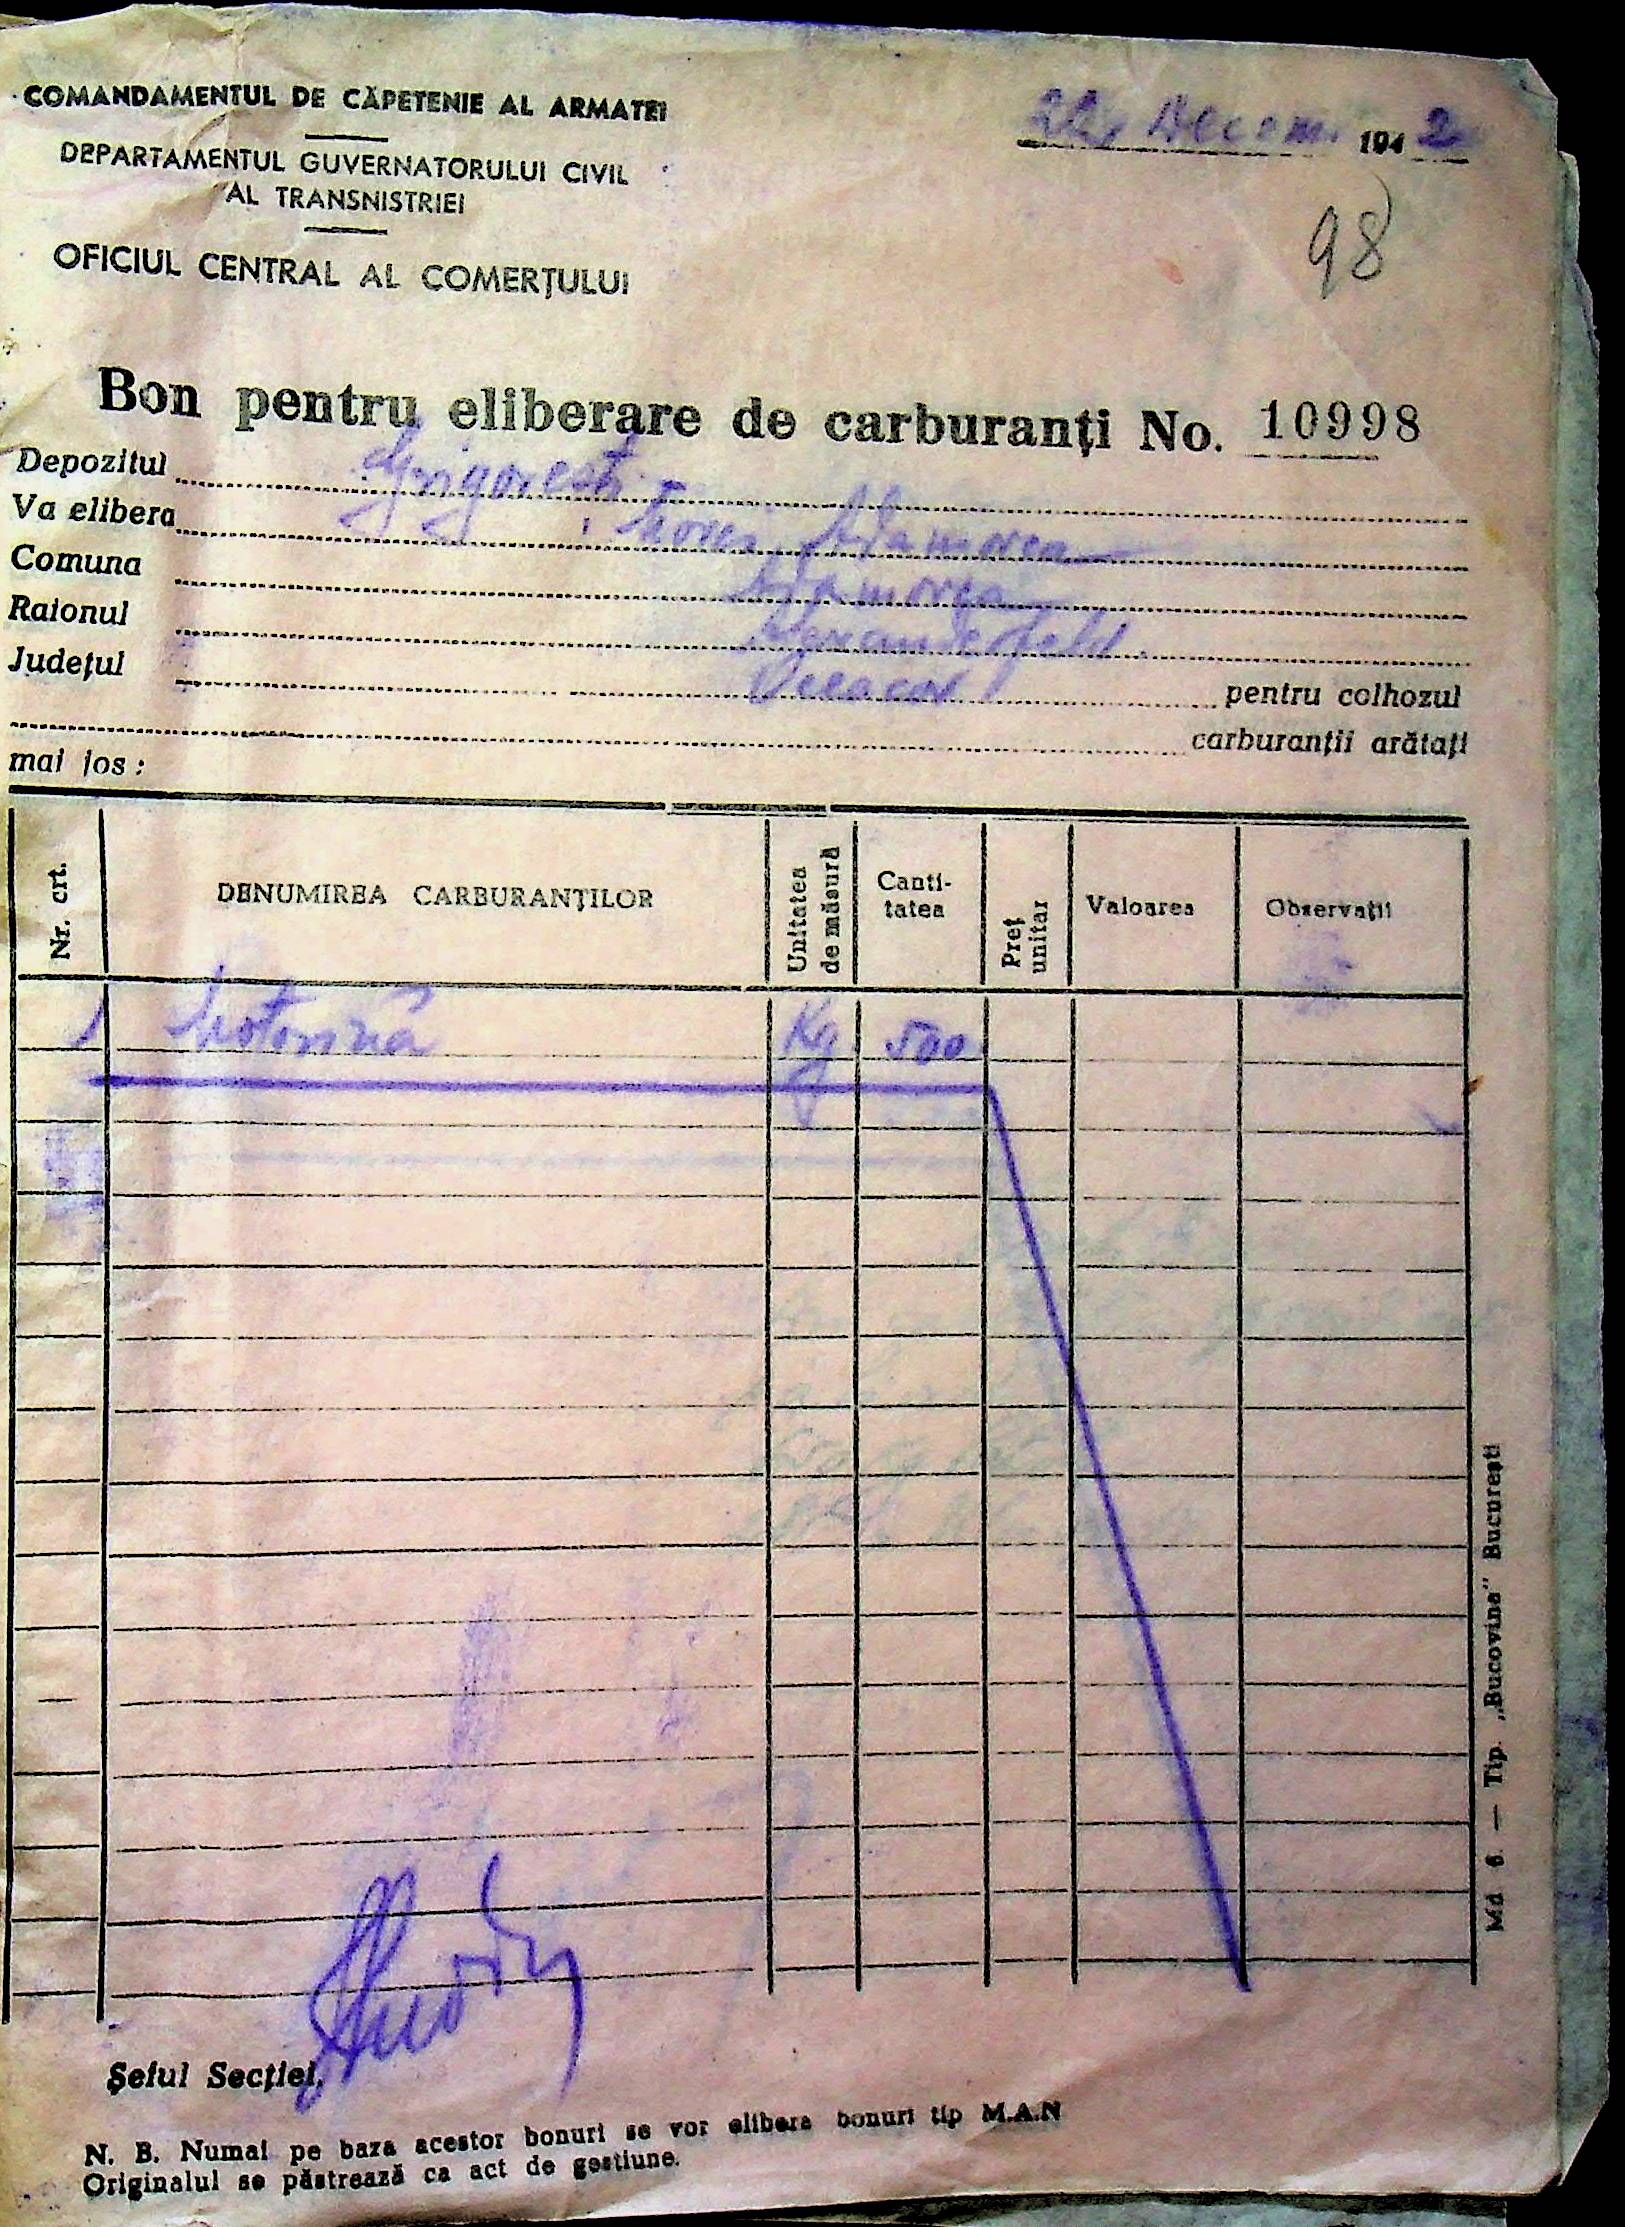 COMANDAMENTUL DE CĂPETENIE AL ARMATEI
DEPARTAMENTUL GUVERNATORULUI CIVIL
AL TRANSNISTRIEI
OFICIUL CENTRAL AL COMERȚULUI
Decem. 1942
98
Bon pentru eliberare de carburanți No. 10998
Depozitul Grigorești
Va elibera
Comuna
Raionul
Județul pentru colhozul
carburanții arătați
mai jos:
Nr. crt. DENUMIREA CARBURANȚILOR Unitatea de măsură Canti-tatea Preț unitar Valoarea Observații
1 Motorină Kg. 500
Șeful Secției,
N. B. Numai pe baza acestor bonuri se vor elibera bonuri tip M.A.N
Originalul se păstrează ca act de gestiune.
Md 6. — Tip. „Bucovina" București